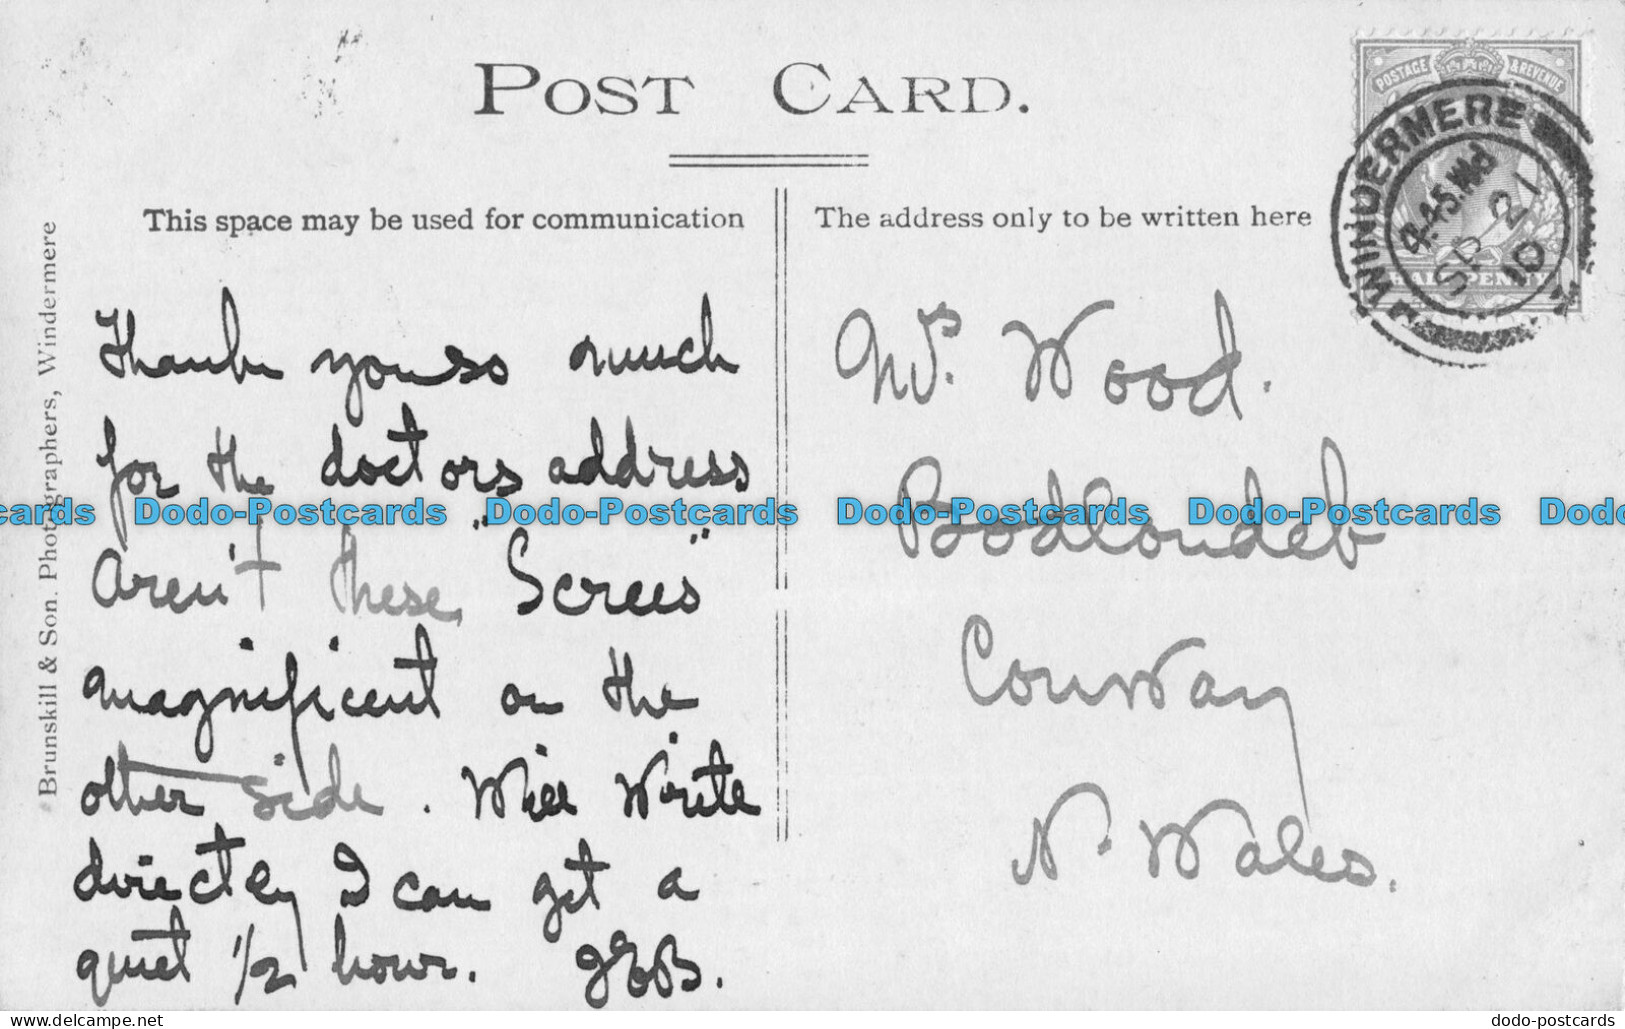 POST CARD.
This space may be used for communication
The address only to be written here
Brunskill & Son. Photographers, Windermere
POSTAGE & REVENUE
HALFPENNY
WINDERMERE
4.45.PM
SP 21
10
Thank you so much
for the doctors address
Aren't these "Screes"
magnificent on the
other side. Will write
directly I can get a
quiet 1/2 hour. JEB.
Mrs. Wood.
Bodlondeb
Conway
N. Wales.
cards Dodo-Postcards Dodo-Postcards Dodo-Postcards Dodo-Postcards Dodo
All rights reserved. delcampe.net
dodo-postcards